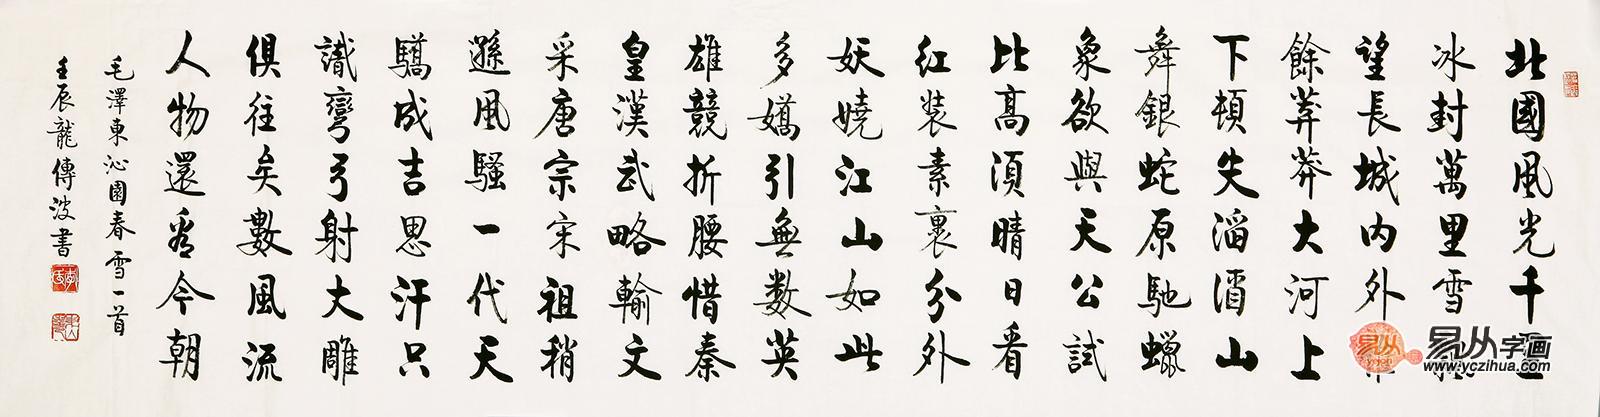 北國風光千
冰封萬里雪
望長城內外
餘莽莽大河上
下頓失滔滔山
舞銀蛇原馳蠟
象欲與天公試
比高須晴日看
紅裝素裹分外
妖嬈江山如此
多嬌引無數英
雄競折腰惜秦
皇漢武略輸文
采唐宗宋祖稍
遜風騷一代天
驕成吉思汗只
識彎弓射大雕
俱往矣數風流
人物還看今朝
毛澤東沁園春雪一首
壬辰龍傳波書
易从字画
www.yczihua.com